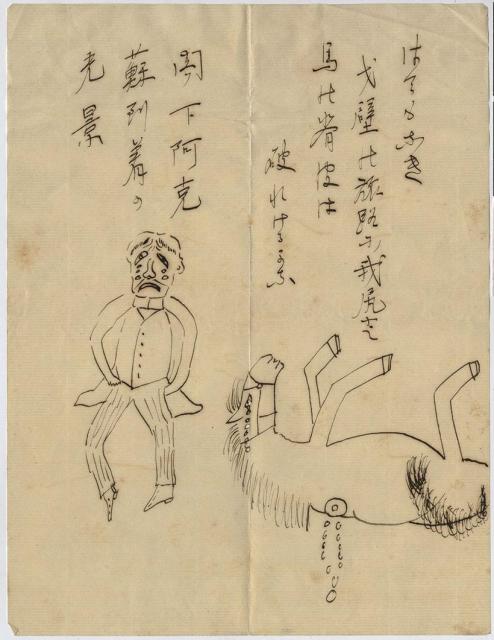 戈壁の旅路に我尻と
馬の背皮は
破れけるかな
閣下阿克
蘇到着の
光景